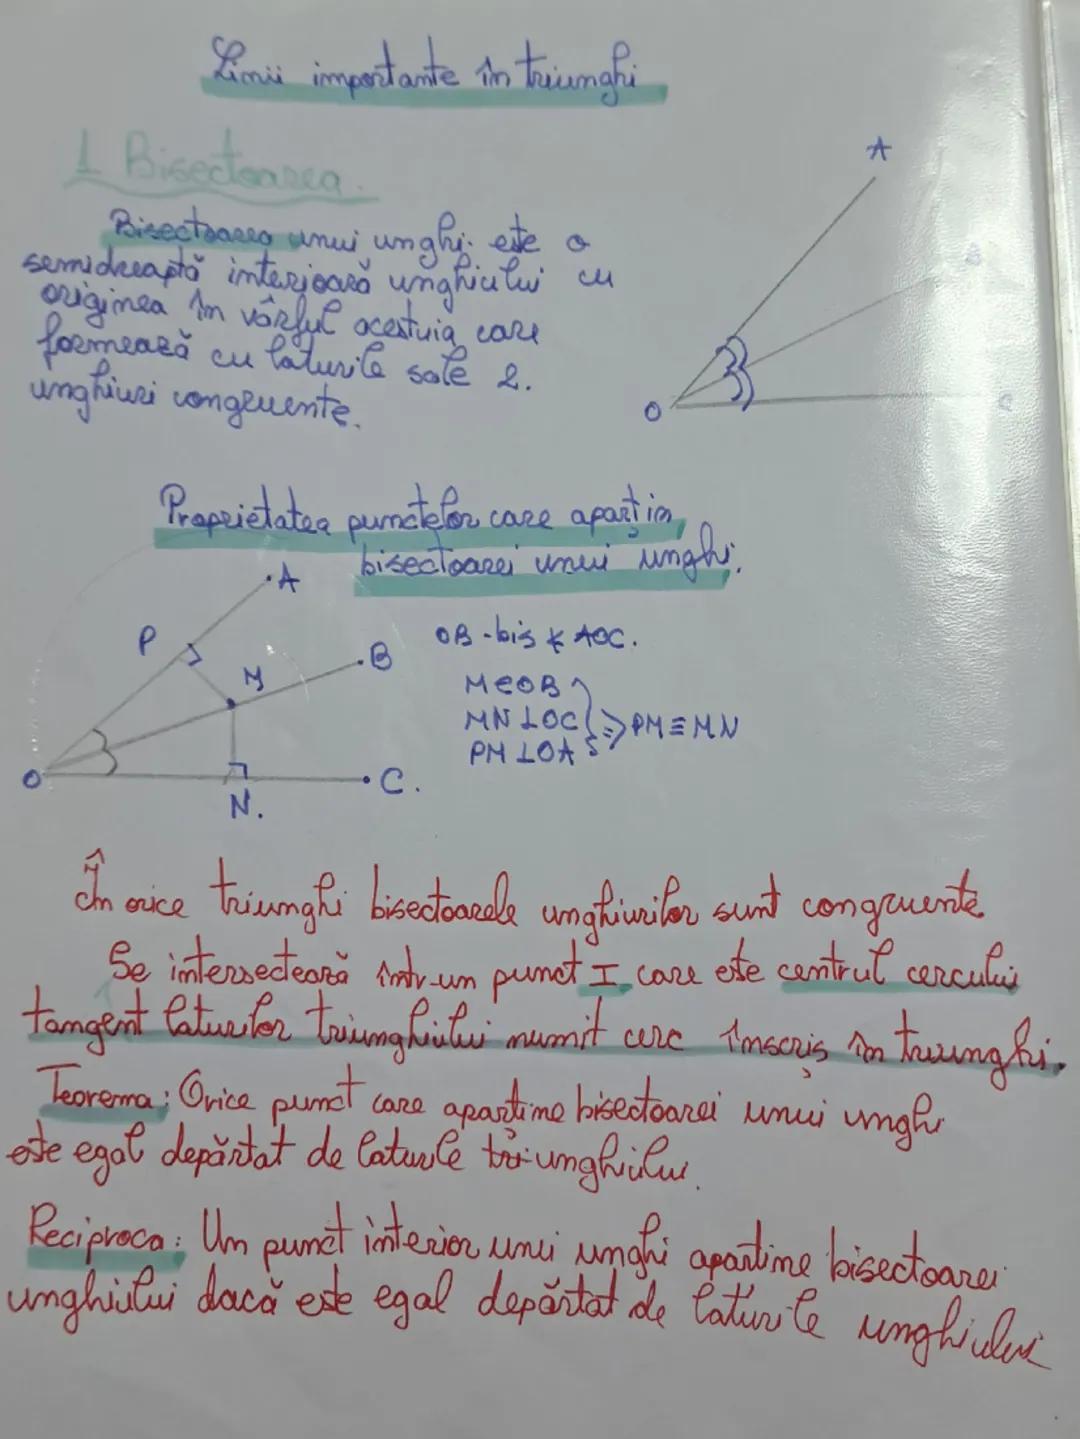 Linii importante în triunghi
1 Bisectoarea.
Bisectoarea unui unghi este o
semidreaptă interioară unghiului cu
originea în vârful acestuia care
formează cu laturile sale 2.
unghiuri congruente.
A
B
O
C
Proprietatea punctelor care aparțin
bisectoarei unui unghi.
A
P
M
B
O
N.
C.
OB - bis ∢ AOC.
M∈OB
MN ⊥ OC ⇒ PM ≡ MN
PM ⊥ OA
În orice triunghi bisectoarele unghiurilor sunt congruente.
Se intersectează într-un punct I care este centrul cercului
tangent laturilor triunghiului numit cerc înscris în triunghi.
Teorema: Orice punct care aparține bisectoarei unui unghi
este egal depărtat de laturile triunghiului.
Reciproca: Un punct interior unui unghi aparține bisectoarei
unghiului dacă este egal depărtat de laturile unghiului